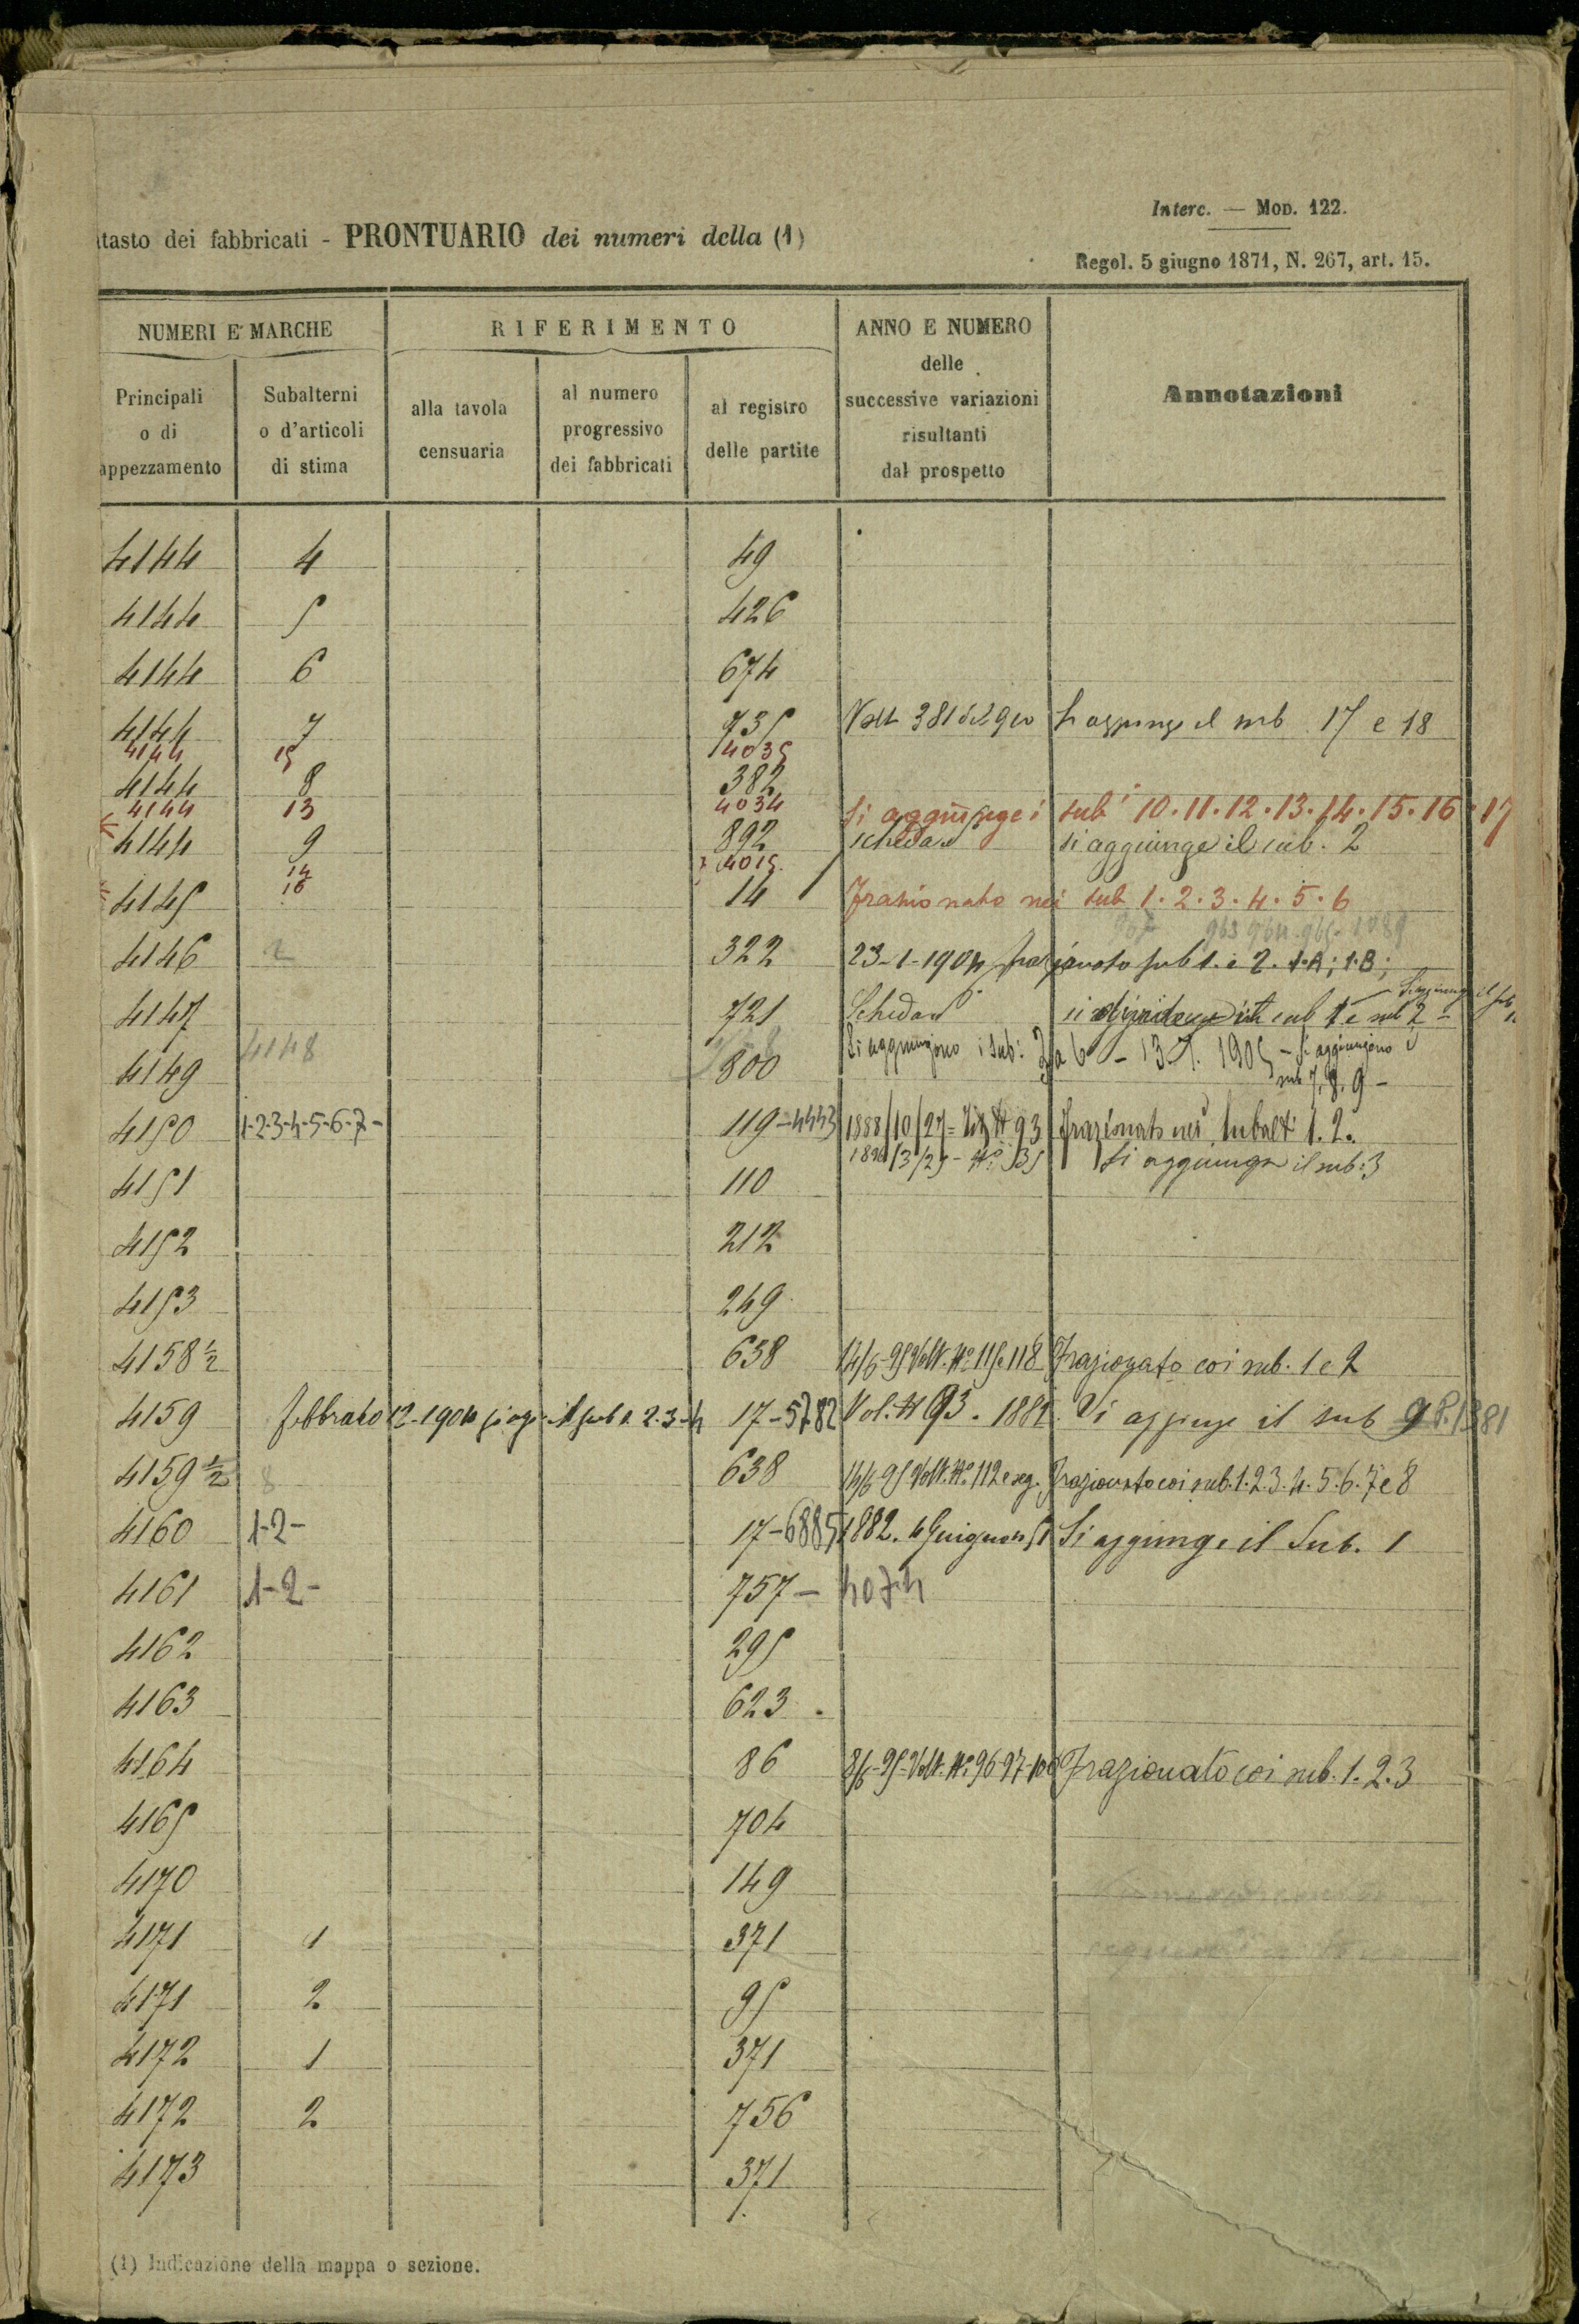 Interc. — Mod. 122.
tasto dei fabbricati - PRONTUARIO dei numeri della (1)
Regol. 5 giugno 1871, N. 267, art. 15.
NUMERI E MARCHE RIFERIMENTO ANNO E NUMERO delle successive variazioni risultanti dal prospetto Annotazioni
Principali o di appezzamento Subalterni o d'articoli di stima alla tavola censuaria al numero progressivo dei fabbricati al registro delle partite
4144 4 49
4144 5 426
4144 6 674
4144 7 735 Volt 381 del 910 Si aggiunge il sub 17 e 18
4144 15 4035
4144 8 382
4144 13 4034 Si aggiunge i sub i 10.11.12.13.14.15.16.17
4144 9 892 schedar si aggiunge il sub. 2
14 4015
16
4145 14 Frazionato nei sub 1.2.3.4.5.6
963 964 965 1089
4146 2 322 23-1-1904 frazionato sub 1. e 2. 1.A; 1.B;
4147 721 Schedar sub 1 e sub 2 - Si aggiunge il sub
4148
4149 800 Si aggiungono i sub: 3 a 6 - 13.7.1905 - Si aggiungono i
sub 7.8.9 -
4150 1-2-3-4-5-6-7- 119-4443 1888/10/27 = N 93 Frazionato nei subalti 1.2.
1896/3/25 - No 535 Si aggiunge il sub: 3
4151 110
4152 212
4153 249
4158 1/2 638 14/6-95 Volt. No 115 e 118 Frazionato coi sub. 1 e 2
4159 febbraio 12-1904 si agg. il sub 1. 2-3-4 17-5782 Vol. N 93. 1881. Si aggiunge il sub 9 P. 1381
4159 1/2 8 638 14/6 95 Volt. No 112 e seg. Frazionato coi sub. 1.2.3.4.5.6.7 e 8
4160 1-2- 17-6885 1882. 4 Giugno N 51 Si aggiunge il Sub. 1
4161 1-2- 757- 4074
4162 295
4163 623
4164 86 8/6-95-Volt. No 96-97-100 Frazionato coi sub. 1.2.3
4165 704
4170 149
4171 1 371
4171 2 95
4172 1 371
4172 2 756
4173 371
(1) Indicazione della mappa o sezione.